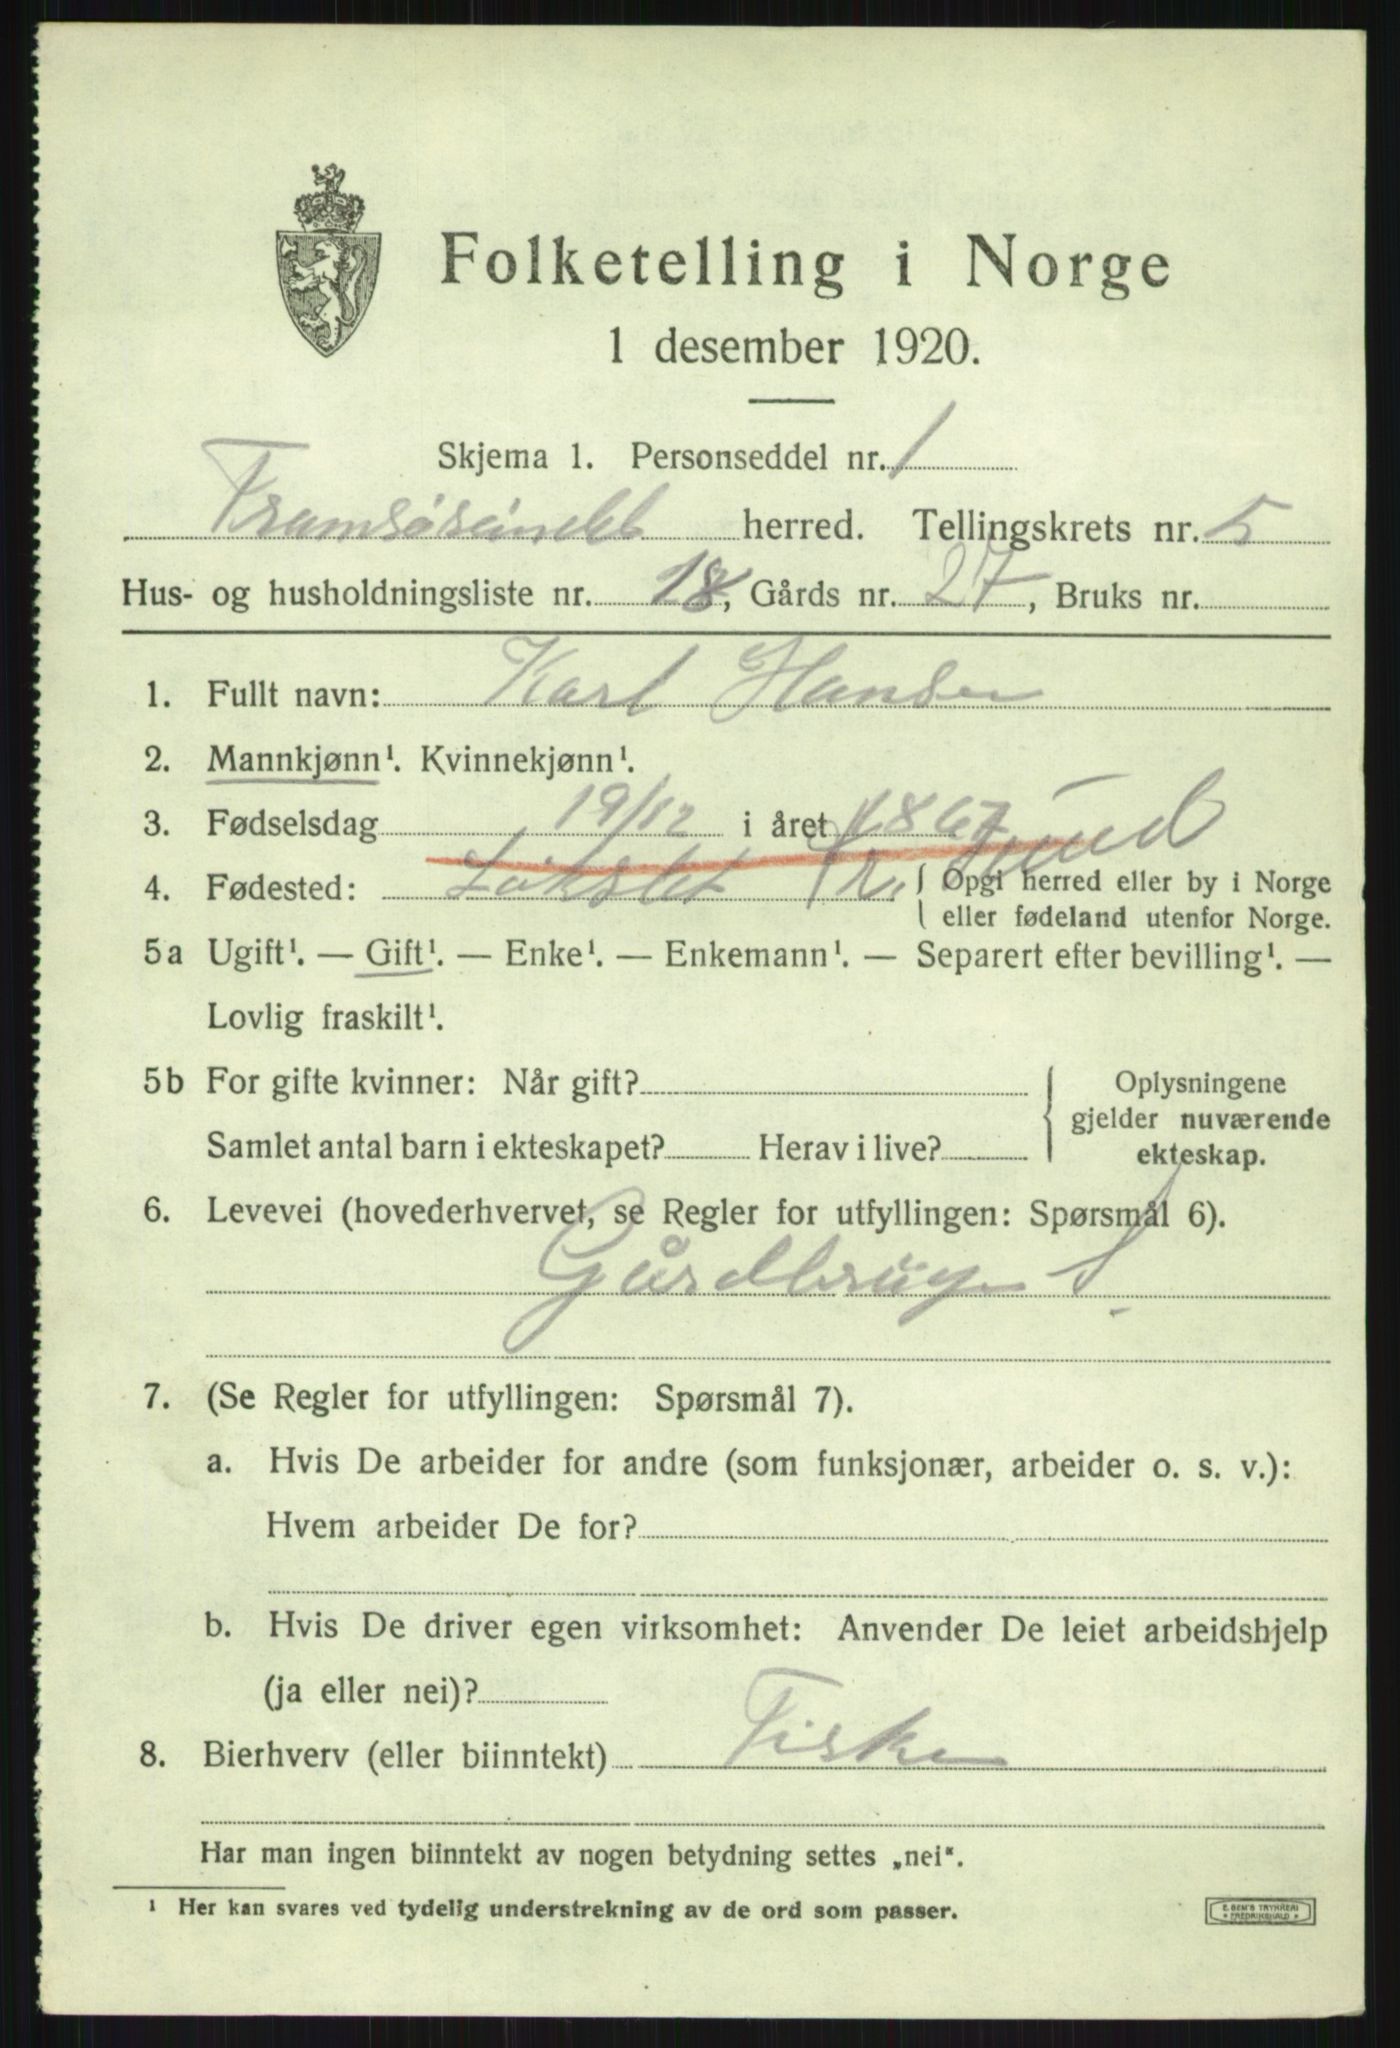 Folketelling i Norge
1 desember 1920.
Skjema 1. Personseddel nr. 1
Tromsøsundet herred. Tellingskrets nr. 5
Hus- og husholdningsliste nr. 18, Gårds nr. 27, Bruks nr.
1. Fullt navn: Karl Hansen
2. Mannkjønn¹. Kvinnekjønn¹.
3. Fødselsdag 19/12 i året 1867
4. Fødested: Kr. sund { Opgi herred eller by i Norge
eller fødeland utenfor Norge.
5a Ugift¹. — Gift¹. — Enke¹. — Enkemann¹. — Separert efter bevilling¹. —
Lovlig fraskilt¹.
5b For gifte kvinner: Når gift? { Oplysningene
gjelder nuværende
Samlet antal barn i ekteskapet? Herav i live? ekteskap.
6. Levevei (hovederhvervet, se Regler for utfyllingen: Spørsmål 6).
Gårdbruger S.
7. (Se Regler for utfyllingen: Spørsmål 7).
a. Hvis De arbeider for andre (som funksjonær, arbeider o. s. v.):
Hvem arbeider De for?
b. Hvis De driver egen virksomhet: Anvender De leiet arbeidshjelp
(ja eller nei)?
8. Bierhverv (eller biinntekt) Fisker
Har man ingen biinntekt av nogen betydning settes „nei".
¹ Her kan svares ved tydelig understrekning av de ord som passer.
E. SEM'S TRYKKERI
* FREDRIKSHALD *